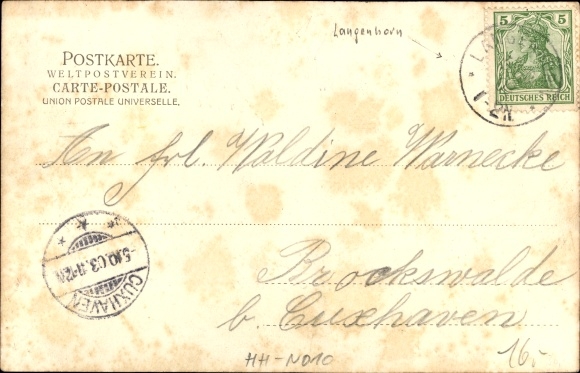 Langenhorn
5 5
DEUTSCHES REICH
1-2N.
POSTKARTE.
WELTPOSTVEREIN.
CARTE-POSTALE.
UNION POSTALE UNIVERSELLE.
An Frl. Waldine Warnecke
5.10.03.11-12V.
CUXHAVEN
Brockswalde
b. Cuxhaven
HH-ND10
16,-